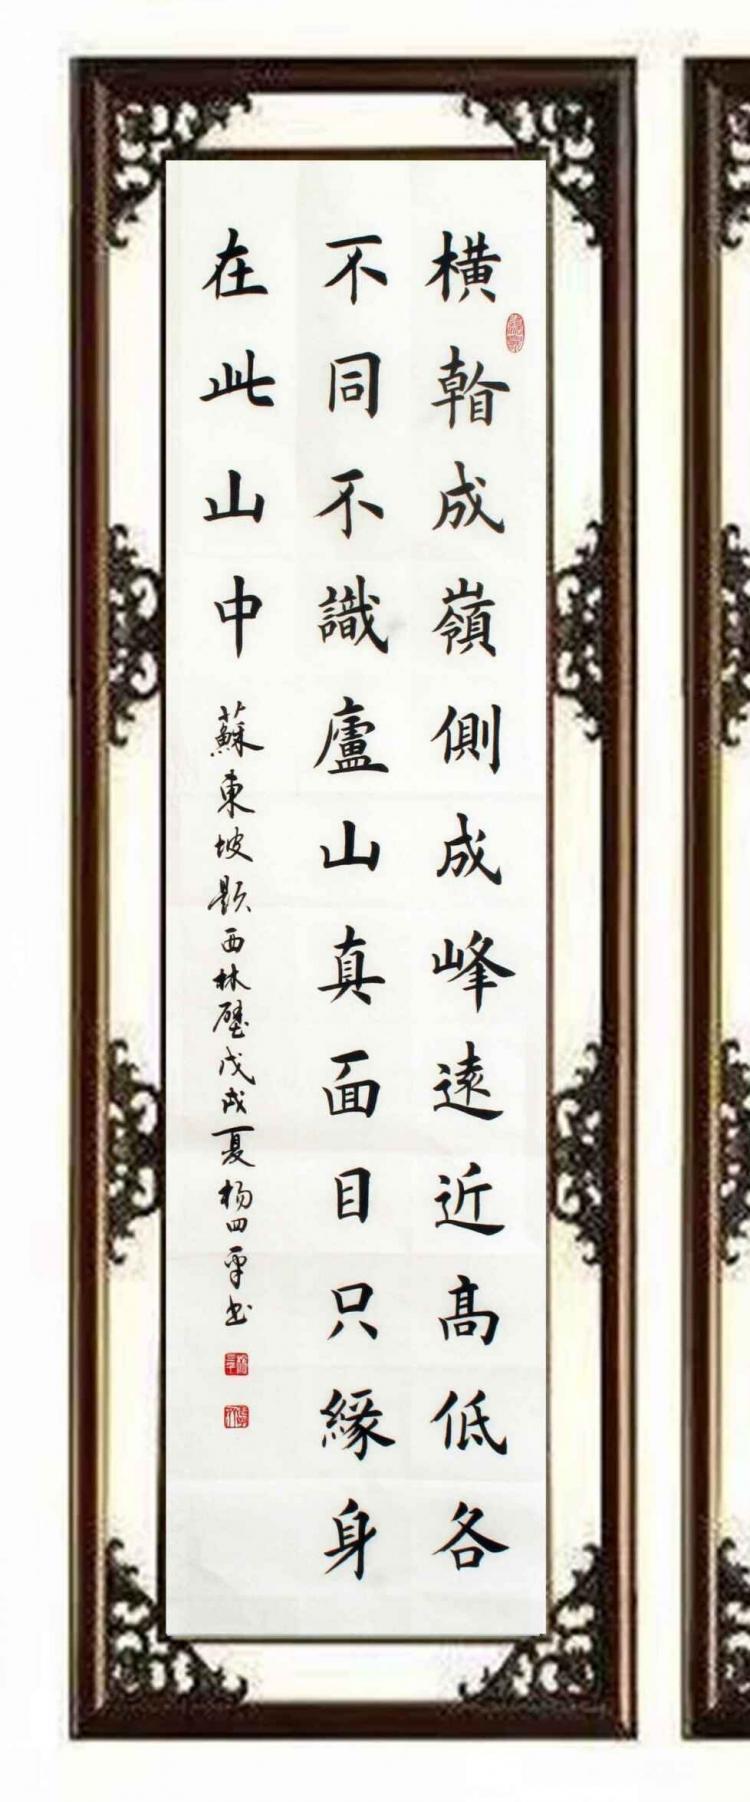 橫看成嶺側成峰遠近髙低各
不同不識廬山真面目只緣身
在此山中
蘇東坡題西林壁戊戌夏楊四平書